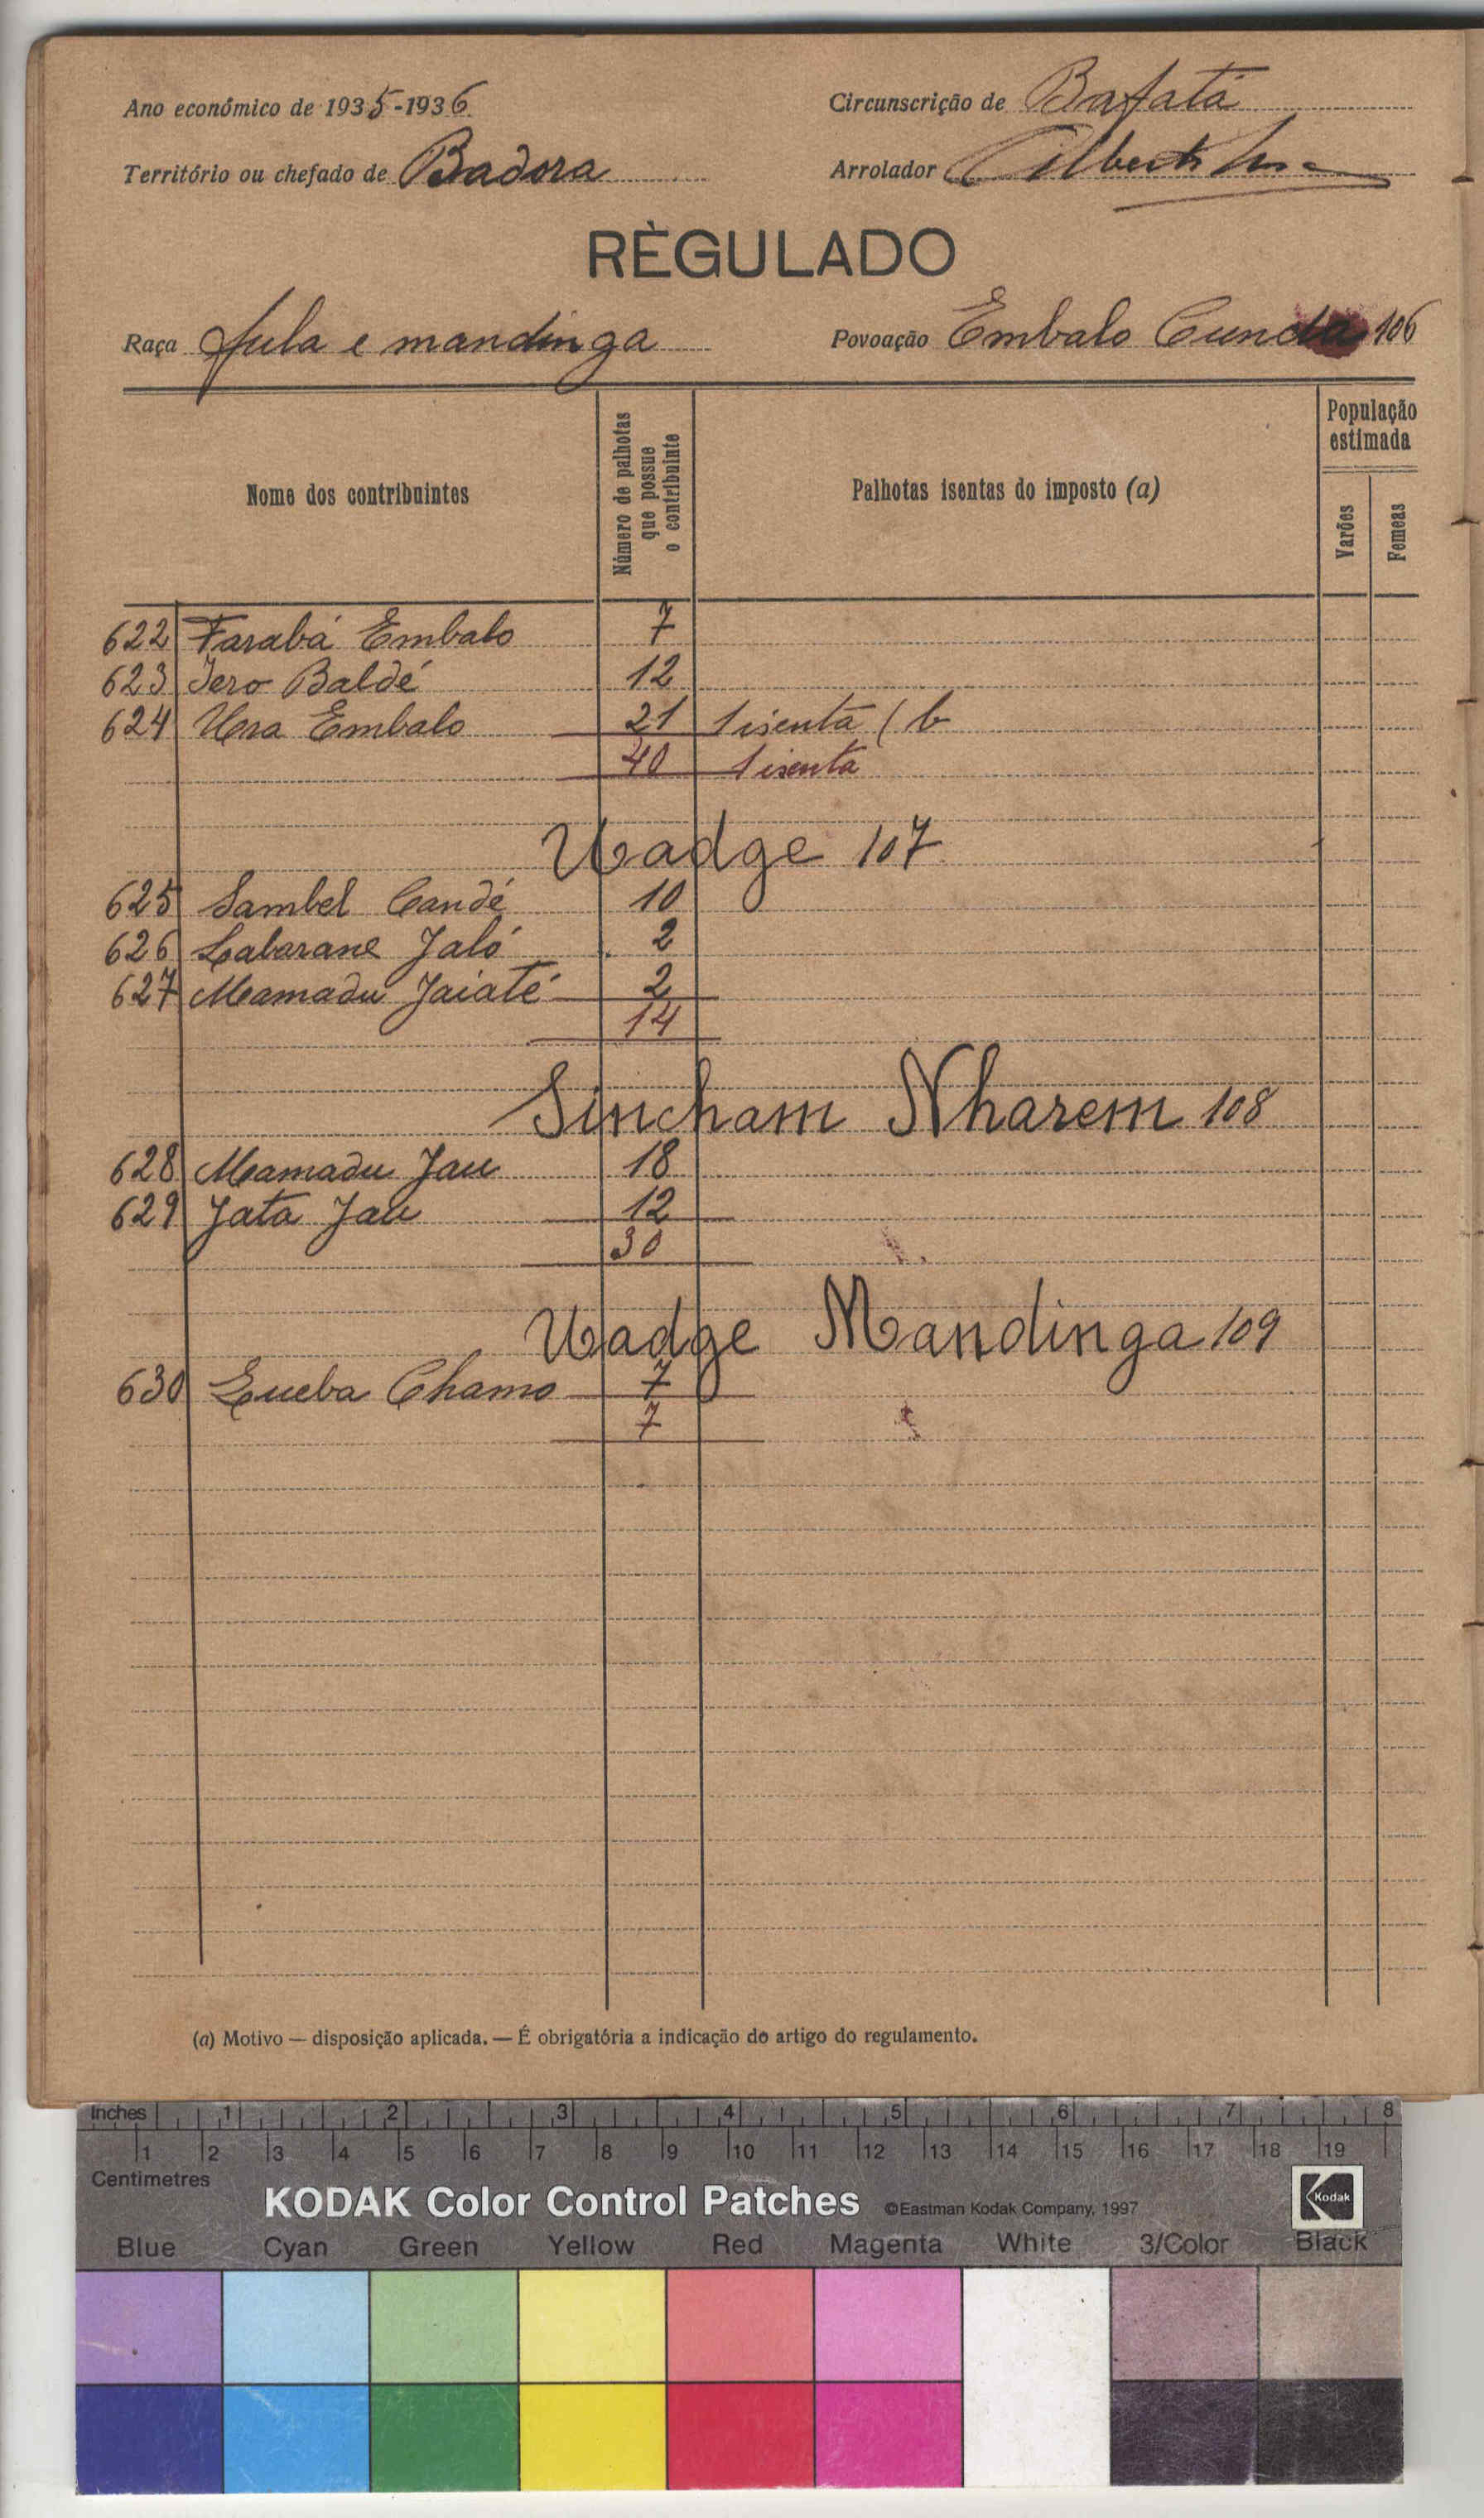 Ano económico de 1935-1936 Circunscrição de Bafatá
Território ou chefado de Badora Arrolador
RÈGULADO
Raça fula e mandinga Povoação Embalo Cunda 106
Nome dos contribuintes
Número de palhotas que possue o contribuinte
Palhotas isentas do imposto (a)
População estimada
Varões
Femeas
622 Farabá Embalo 7
623 Iero Baldé 12
624 Ura Embalo 21 1 isenta (b
40 1 isenta
Uadge 107
625 Sambel Candé 10
626 Labarane Jaló 2
627 Mamadu Jaiaté 2
14
Sincham Nharem 108
628 Mamadu Jau 18
629 Jata Jau 12
30
Uadge Mandinga 109
630 Queba Chamo 7
7
(a) Motivo — disposição aplicada. — É obrigatória a indicação do artigo do regulamento.
Inches 1 2 3 4 5 6 7 8
1 2 3 4 5 6 7 8 9 10 11 12 13 14 15 16 17 18 19
Centimetres
KODAK Color Control Patches ©Eastman Kodak Company, 1997 Kodak
Blue Cyan Green Yellow Red Magenta White 3/Color Black